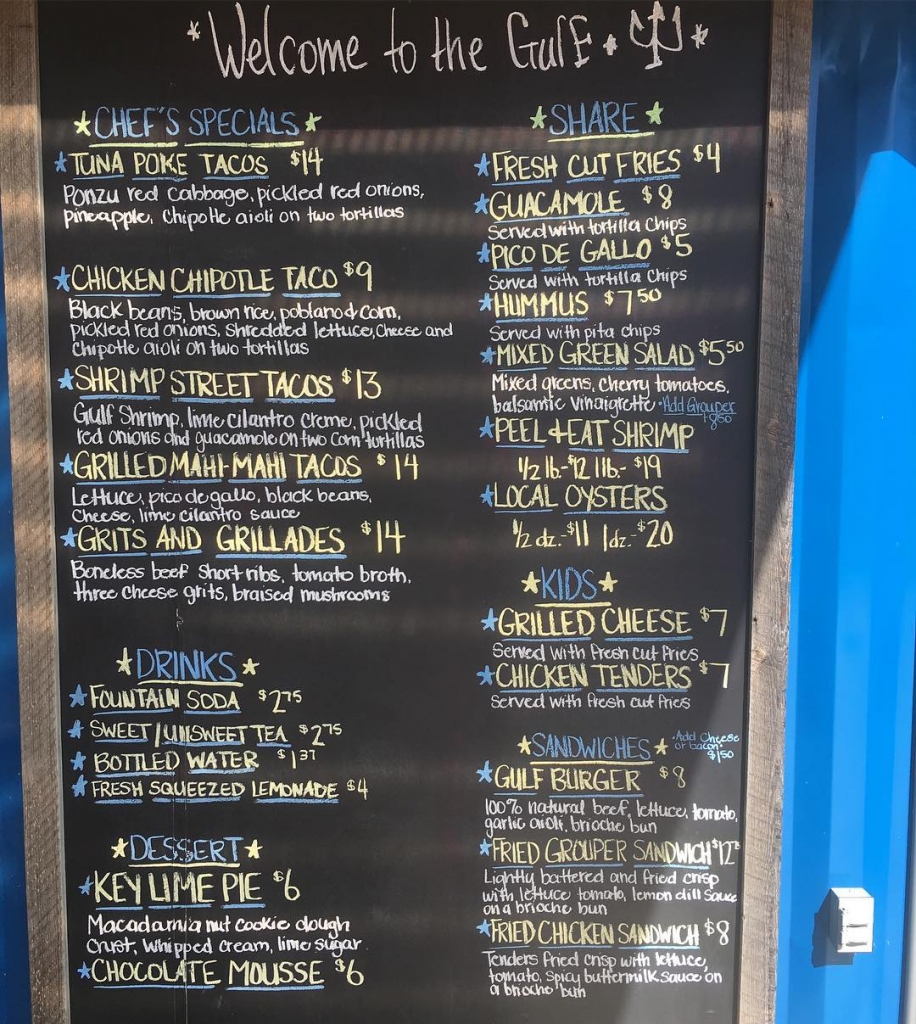 *Welcome to the Gulf.*
CHEF'S SPECIALS
TUNA POKE TACOS $14
Ponzu red cabbage, pickled red onions,
pineapple, Chipotle aioli on two tortillas
CHICKEN CHIPOTLE TACO $9
Black beans, brown rice, poblano & corn,
pickled red onions, shredded lettuce, cheese and
chipotle aioli on two tortillas
SHRIMP STREET TACOS $13
Gulf Shrimp, lime cilantro creme, pickled
red onions and guacamole on two corn tortillas
GRILLED MAHI-MAHI TACOS $14
Lettuce, pico de gallo, black beans,
Cheese, lime cilantro sauce
GRITS AND GRILLADES $14
Boneless beef short ribs, tomato broth,
three cheese grits, braised mushrooms
DRINKS
FOUNTAIN SODA $2.75
SWEET/UNSWEET TEA $2.75
BOTTLED WATER $1.37
FRESH SQUEEZED LEMONADE $4
DESSERT
KEY LIME PIE $6
Macadamia nut cookie dough
Crust, whipped cream, lime sugar
CHOCOLATE MOUSSE $6
SHARE
FRESH CUT FRIES $4
GUACAMOLE $8
Served with tortilla chips
PICO DE GALLO $5
Served with tortilla chips
HUMMUS $7.50
Served with pita chips
MIXED GREEN SALAD $5.50
Mixed greens, cherry tomatoes,
balsamic vinaigrette • Add Grouper
+8.50
PEEL & EAT SHRIMP
1/2 lb.-$12 1 lb.- $19
LOCAL OYSTERS
1/2 dz.-$11 1dz.-$20
KIDS
GRILLED CHEESE $7
Served with fresh cut fries
CHICKEN TENDERS $7
Served with fresh cut fries
SANDWICHES
• Add Cheese
or bacon •
$1.50
GULF BURGER $8
100% natural beef, lettuce, tomato,
garlic aioli, brioche bun
FRIED GROUPER SANDWICH $12
Lightly battered and fried crisp
with lettuce tomato, lemon dill sauce
on a brioche bun
FRIED CHICKEN SANDWICH $8
Tenders fried crisp with lettuce,
tomato, spicy buttermilk sauce on
a brioche bun